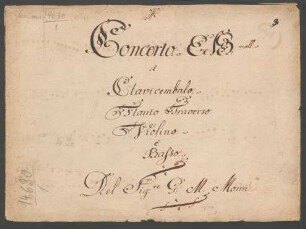 Concerto Ex B moll
a
Clavicembalo
Flauto Traverso
Violino
e
Basso
Del Sigre G. M. Monn
14680